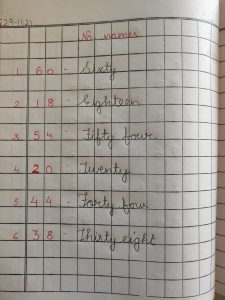 No names
1. 60 - Sixty
2. 18 - Eighteen
3. 54 - Fifty four
4. 20 - Twenty
5. 44 - Forty four
6. 38 - Thirty eight